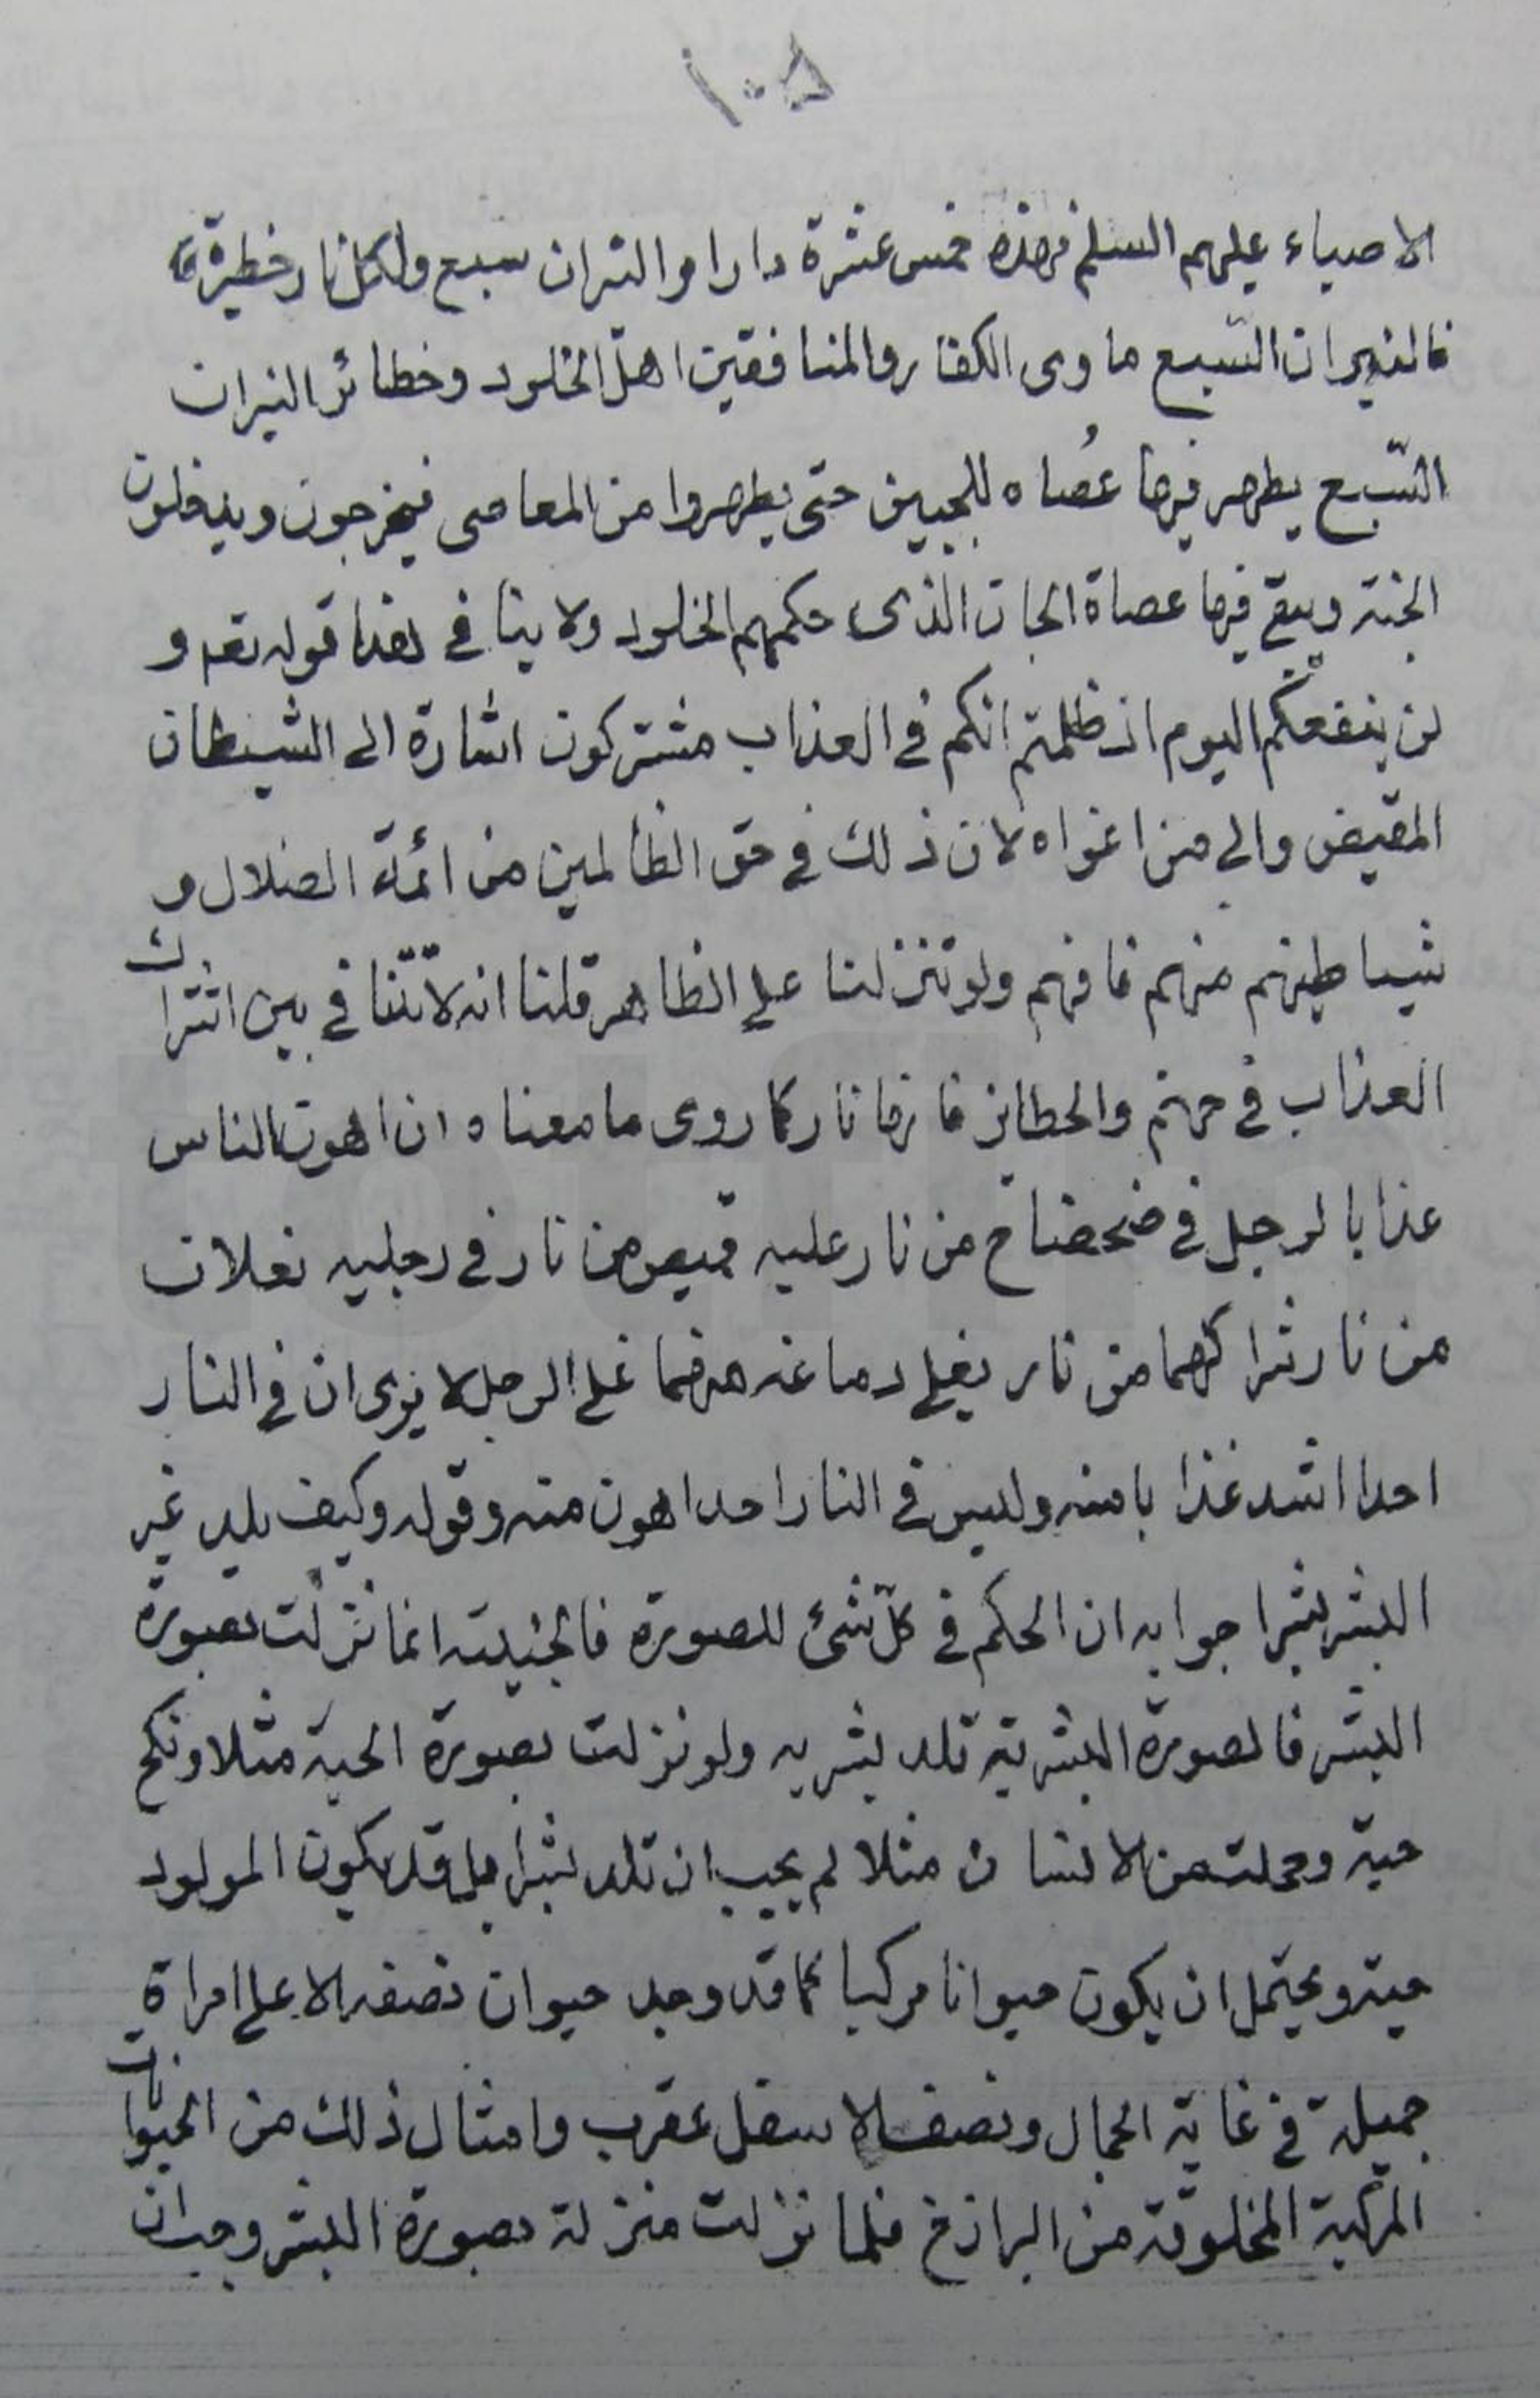 ١٠٥
الاصياء عليهم السلم فهذه خمس عشرة دارا والنران سبع ولكل نار خطيرة
فالنيران السّبع ماوى الكفار والمنافقين اهل الخلود وخطائر النيران
السّبع يطهر فيها عُصاه للمجيين حتى يطهروا من المعاصى فيخرجون ويدخلون
الجنة ويبقى فيها عصاة الجان الذى حكمهم الخلود ولا ينافى هذا قوله تعه و
لن ينفعكم اليوم اذ ظلمتم انكم فى العذاب مشتركون اشارة الى الشيطان
المقيض والى من اغواه لان ذلك فى حق الظالمين من ائمة الضلال و
شياطينهم منهم فافهم ولو تنزلنا على الظاهر قلنا انه لا تنافى بين اشتراك
العذاب فى جهنم والحظائر فانها نار كما روى ما معناه ان اهون الناس
عذابا لرجل فى ضحضاح من نار عليه قميص من نار فى رجليه نعلان
من نار شراكهما من نار يغلى دماغه منهما غلى الرجل لا يرى ان فى النار
احدا اشد عذابا منه وليس فى النار احدا هون منه وقوله وكيف يلد غير
البشر بشرا جوابه ان الحكم فى كلّ شئ للصورة فالجنية انما نزلت بصورة
البشر فالصورة البشرية تلد بشريه ولو نزلت بصورة الحية مثلا ونكح
حية وحملت من الانسان مثلا لم يجب ان تلد بشرا بل قد يكون المولود
حية ويحتمل ان يكون حيوانا مركبا كما قد وجد حيوان نصفه الاعلى امراة
جميلة فى غاية الجمال ونصفه الاسفل عقرب وامثال ذلك من الحيوانات
المركبة المخلوقة من البرازخ فلما نزلت منزلة بصورة البشر وجب ان